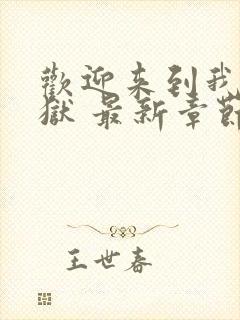 歡迎来到我
獄 最新章節
王世春